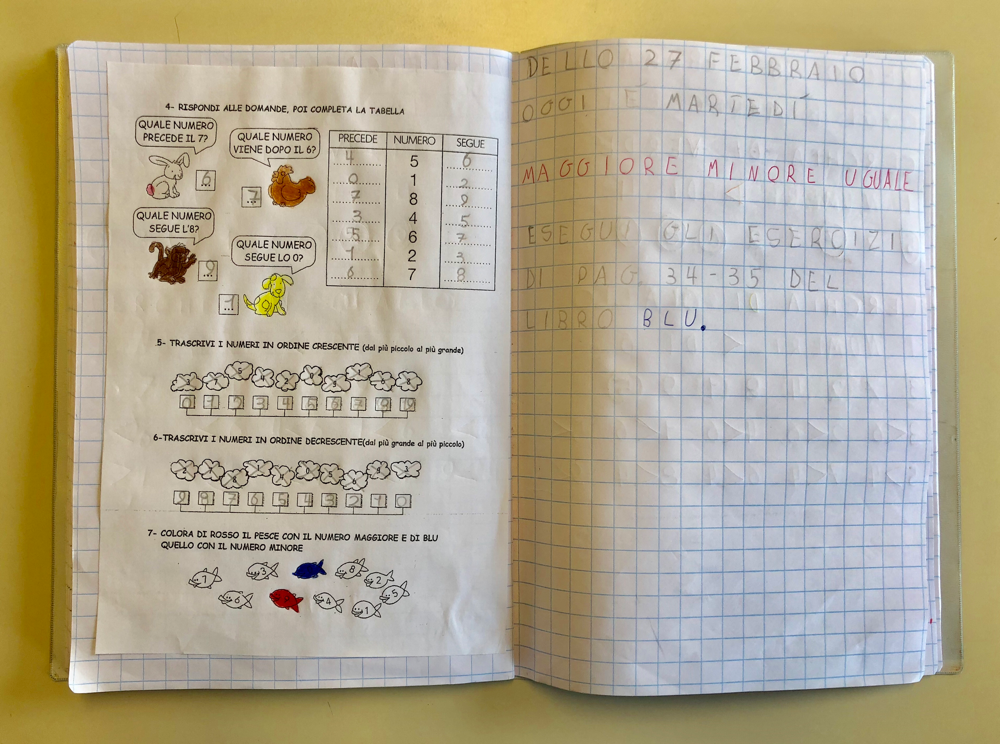 4- RISPONDI ALLE DOMANDE, POI COMPLETA LA TABELLA
QUALE NUMERO
PRECEDE IL 7?
6
QUALE NUMERO
VIENE DOPO IL 6?
7
QUALE NUMERO
SEGUE L'8?
9
QUALE NUMERO
SEGUE LO 0?
1
PRECEDE NUMERO SEGUE
4 5 6
0 1 2
7 8 9
3 4 5
5 6 7
1 2 3
6 7 8
5- TRASCRIVI I NUMERI IN ORDINE CRESCENTE (dal più piccolo al più grande)
0 1 2 3 4 5 6 7 8 9
6-TRASCRIVI I NUMERI IN ORDINE DECRESCENTE(dal più grande al più piccolo)
9 8 7 6 5 4 3 2 1 0
7- COLORA DI ROSSO IL PESCE CON IL NUMERO MAGGIORE E DI BLU
QUELLO CON IL NUMERO MINORE
7 3 8 2
6 4 1 5
DELLO 27 FEBBRAIO
OGGI È MARTEDÍ
MAGGIORE MINORE UGUALE
<
ESEGUI GLI ESERCIZI
DI PAG. 34-35 DEL
LIBRO BLU.